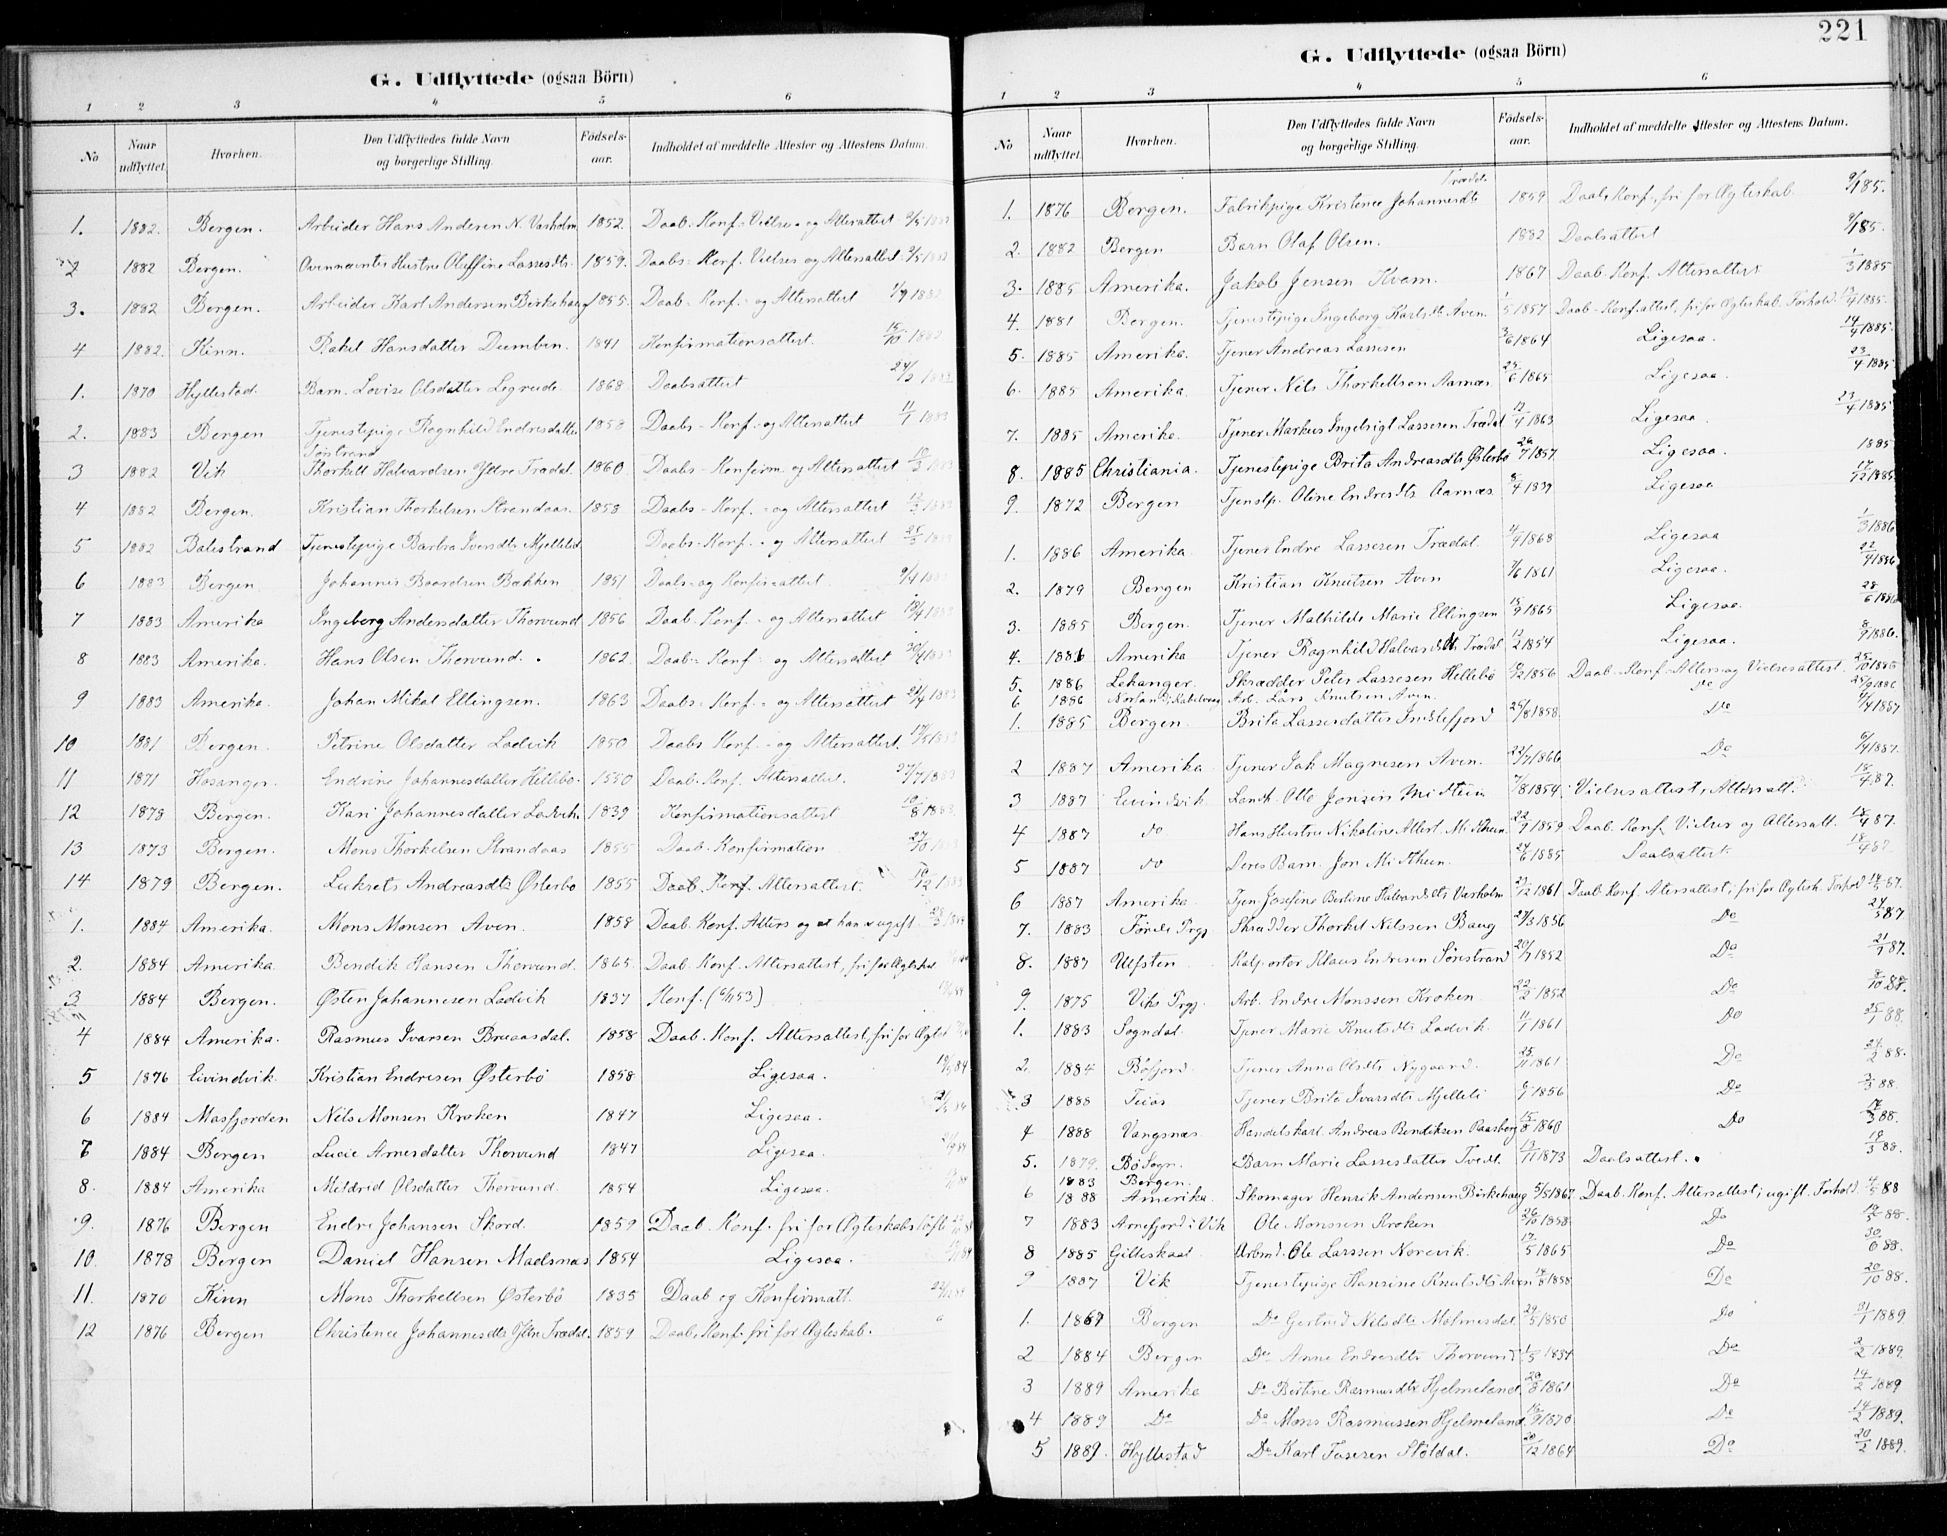 G. Udflyttede (ogsaa Börn)
1 2 3 4 5 6
No Naar udflyttet. Hvorhen. Den Udflyttedes fulde Navn og borgerlige Stilling. Fødsels-aar. Indholdet af meddelte Attester og Attestens Datum.
1. 1882. Bergen. Arbeider Hans Andersen N. Vasholm 1852. Daab-Konf-Vielses- og Altersattest
2 1882 Bergen. Hustru Oluffine Lassesdtr 1859. Daabs-Konf. Vielses og Altersattest
3. 1882 Bergen. Arbeider Karl Andersen Birkehaug 1855. Daab-Konf.- og Altersattest
4 1882. Kinn. Rakel Hansdatter Dumben. 1841 Konfirmationsattest. 15/10 1882
1. 1870 Hyllestad. Barn. Lovise Olsdatter Legreide. 1868 Daabsattest
2. 1883 Bergen Tjenestepige Ragnhild Endresdatter Sörstrand 1858 Daabs-Konf.- og Altersattest 11/1 1883
3 1882 Vik Thorkell Halvardsen Ytre Trædal 1860. Daabs-Konfirm. og Altersattest
4 1882 Bergen. Kristian Thorkelsen Strandaas. 1858 Daabs-Konf.- og Altersattest
5 1882 Balestrand Tjenestepige Barbra Iversdtr Mjelleteig Daabs-Konf.- og Altersattest
6 1883 Bergen Johannes Baardsen Bakken 1851 Daabs- og Konfir-attest.
7 1883 Amerika Ingeborg Andersdatter Thorvund 1856 Daab. Konf.- og Altersattest
8 1883 Amerika. Hans Olsen Thorvund. 1862. Daab- Konf- og Altersattest
9 1883 Amerika. Johan Mikal Ellingsen. 1863 Daabs-Konf.- og Altersattest 21/4 1883
10 1881 Bergen. Petrine Olsdatter Ladvik 1850 Daabs Konf.- og Altersattest.
11 1871 Hosanger. Endrine Johannesdatter Hellebø. 1850 Daab-Konf. Altersattest.
12 1878 Bergen. Kari Johannesdatter Ladvik 1839 Konfirmationsattest
13 1873 Bergen. Mons Thorkelsen Strandaas 1855 Daab-Konfirmation
14 1879 Bergen. Lukrets Andreasdtr Østerbø 1855 Daab. Konf. Altersattest.
1. 1884 Amerika. Mons Monsen Aven. 1858 Daab. Konf. Alters og at han er ugift.
2. 1884 Amerika. Bendik Hansen Thorvund. 1865. Daab. Konf. Altersattest, fri for Ægteskab
3 1884 Bergen. Østen Johannesen Ladvik 1837 Konf. (6/11 53)
4 1884 Amerika. Rasmus Ivarsen Bruaasdal. 1858 Daab. Konf. Altersattest, fri for Ægtesk
5 1876 Eivindvik. Kristian Endresen Østerbø 1858 Ligesaa.
6 1884 Masfjorden Nels Monsen Kroken 1847 Ligesaa.
7 1884 Bergen Lucie Arnesdatter Thorvund 1847 Ligesaa.
8. 1884 Amerika Meldrid Olsdatter Thorvund. 1854 Ligesaa.
9. 1876 Bergen Endre Johansen Skord. 1859 Daab. Konf. fri for Ægteskabsløfte
10. 1878 Bergen Daniel Hansen Madsnæs 1854 Ligesaa.
11. 1870 Kinn Mons Thorkellsen Østerbø 1835 Daab og Konfirmatt.
12 1876 Bergen Christence Johannesdtr Ytre Trædal. 1859 Daab. Konf. fri for Ægteskab.
221
G. Udflyttede (ogsaa Börn)
1 2 3 4 5 6
No Naar udflyttet. Hvorhen. Den Udflyttedes fulde Navn og borgerlige Stilling. Fødsels-aar. Indholdet af meddelte Attester og Attestens Datum.
1. 1876 Bergen. Fabrikpige Kristence Johannesdtr Trædal 1859 Daab, Konf., fri for Ægteskab
2. 1882 Bergen Barn Olaf Olsen. 1882 Daabsattest
3. 1885 Amerika. Jakob Jensen Kvam. 1867 Daab. Konf. Altersattest 1/3 1885
4. 1881 Bergen. Tjenestepige Ingeborg Karlsdtr Aven 1/5 1857 Daab-Konf.attest, fri for Ægteskab. Forhold.
5. 1885 Amerika. Tjener Andreas Lassesen 1864 Ligesaa.
6. 1885 Amerika. Tjener Nils Thorkellsen Aarnæs. 1865 Ligesaa. 23/4 1885
7. 1885 Amerika. Tjener Markus Ingebrigt Lassesen Trædal 1863 Ligesaa. 23/4 1885
8. 1885 Christiania. Tjenestepige Brita Andreasdtr Østerbø 26/7 1857. Ligesaa. 1885
9. 1872 Bergen Tjenstp. Oline Endresdtr Aarnæs. 8/4 1839 Ligesaa 17/12 1885
1. 1886 Amerika. Tjener Endre Lassesen Trædal. 4/4 1868 Ligesaa 1/3 1886
2. 1879 Bergen Kristian Knutsen Aven 7/6 1861 Ligesaa. 22/4 1886
3. 1885 Bergen. Tjener Mathilde Marie Ellingsen 15/9 1865 Ligesaa. 28/6 1886
4. 1886 Amerika Tjener Ragnhild Halvardsdtr Trædal 12/2 1854 Ligesaa. 8/9 1886.
5. 1886 Lekanger. Skrædder Peter Lassesen Hellebø 1856 Daab-Konf-Alters og Vielsesattest. 25/10 1886
6 1886 Arb. Lars Knutsen Aven. Do 25/9 1886
1. 1885 Bergen. Brita Lassesdatter Indrefjord 25/8 1858. Do
2 1887 Amerika Tjener Jak Magnesen Aven. 22/7 1866 Do
3 1887 Eivindvik. Landh. Otto Jonsen Midthun 7/8 1854. Vielsesattest, Altersatt. 18/4 87.
4 1887 do Hans Hustru Nikoline Albert. Midthun. 22/9 1859 Daab. Konf. Vielses og Altersatt. 18/4 87.
5 1887 do Deres Barn. Jon Midthun 24/6 1885 Daabsattest. 18/4 87.
6 1887 Amerika. Tjen. Josefine Bertine Halvardsdtr Vasholm 27/12 1861 Daab. Konf. Altersattest, fri for Ægtesk. Forhold
7. 1883 Förde Prgj Skrædder Thorkel Nilssen Baug 27/3 1856 Do 24/5 87
8. 1887 Ulfsten Kolportør Klaus Endresen Sörestrand 20/7 1852 Do 21/7 87.
9. 1875 Viks Prgj. Arb. Endre Monssen Kroken. 22/2 1852 Do 8/10 88.
1. 1883 Sogndal. Tjener Marie Knutsdtr Ladvik. 11/1 1861 Do 25/1 88.
2. 1884 Böfjord. Tjener Anna Olsdtr Nygaard. 25/11 1861 Do 24/2 88.
3 1888 Feios Tjener Brita Ivarsdtr Mjelleli 1856 Do 2/3 88.
4 1888 Vangsnæs. Handelskarl. Andreas Bendiksen Raasberg 15/8 1860 Do 17/3 88.
5. 1879. Bö Sogn. Barn Marie Lassesdatter Tvedt. 13/11 1873 Daabsattest. 19/3 88.
6 1883 Bergen. 1888 Amerika. Skomager Henrik Andersen Birkehaug 5/5 1867. Daab. Konf. Altersattest; ugift. Forhold.
7 1883 Arnefjord i Vik Ole Monssen Kroken 26/10 1858. Do 19/5 88.
8 1885 Gilleskaal. Arbmd. Ole Larssen Norevik. 17/5 1865 Do
9 1887 Vik Tjenestepige Hansine Knutsdtr Aven 1858 Do 20/10 88.
1. 1867 Bergen Do Gertrud Nilsdtr Malmesdal. 24/5 1850 Do 21/1 1889.
2 1884 Bergen Do Anne Endresdtr Thorvund 1/5 1834 Do 2/2 1889.
3 1889 Amerika Do Bertine Rasmusdtr Hjelmeland. 20/8 1861 Do 14/2 1889
4 1889 Do Do Mons Rasmussen Hjelmeland. 16/9 1870. Do 14/2 1889.
5 1889. Hyllestad Do Karl Fusesen Stöldal. 20/12 1864 Do 20/2 1889.